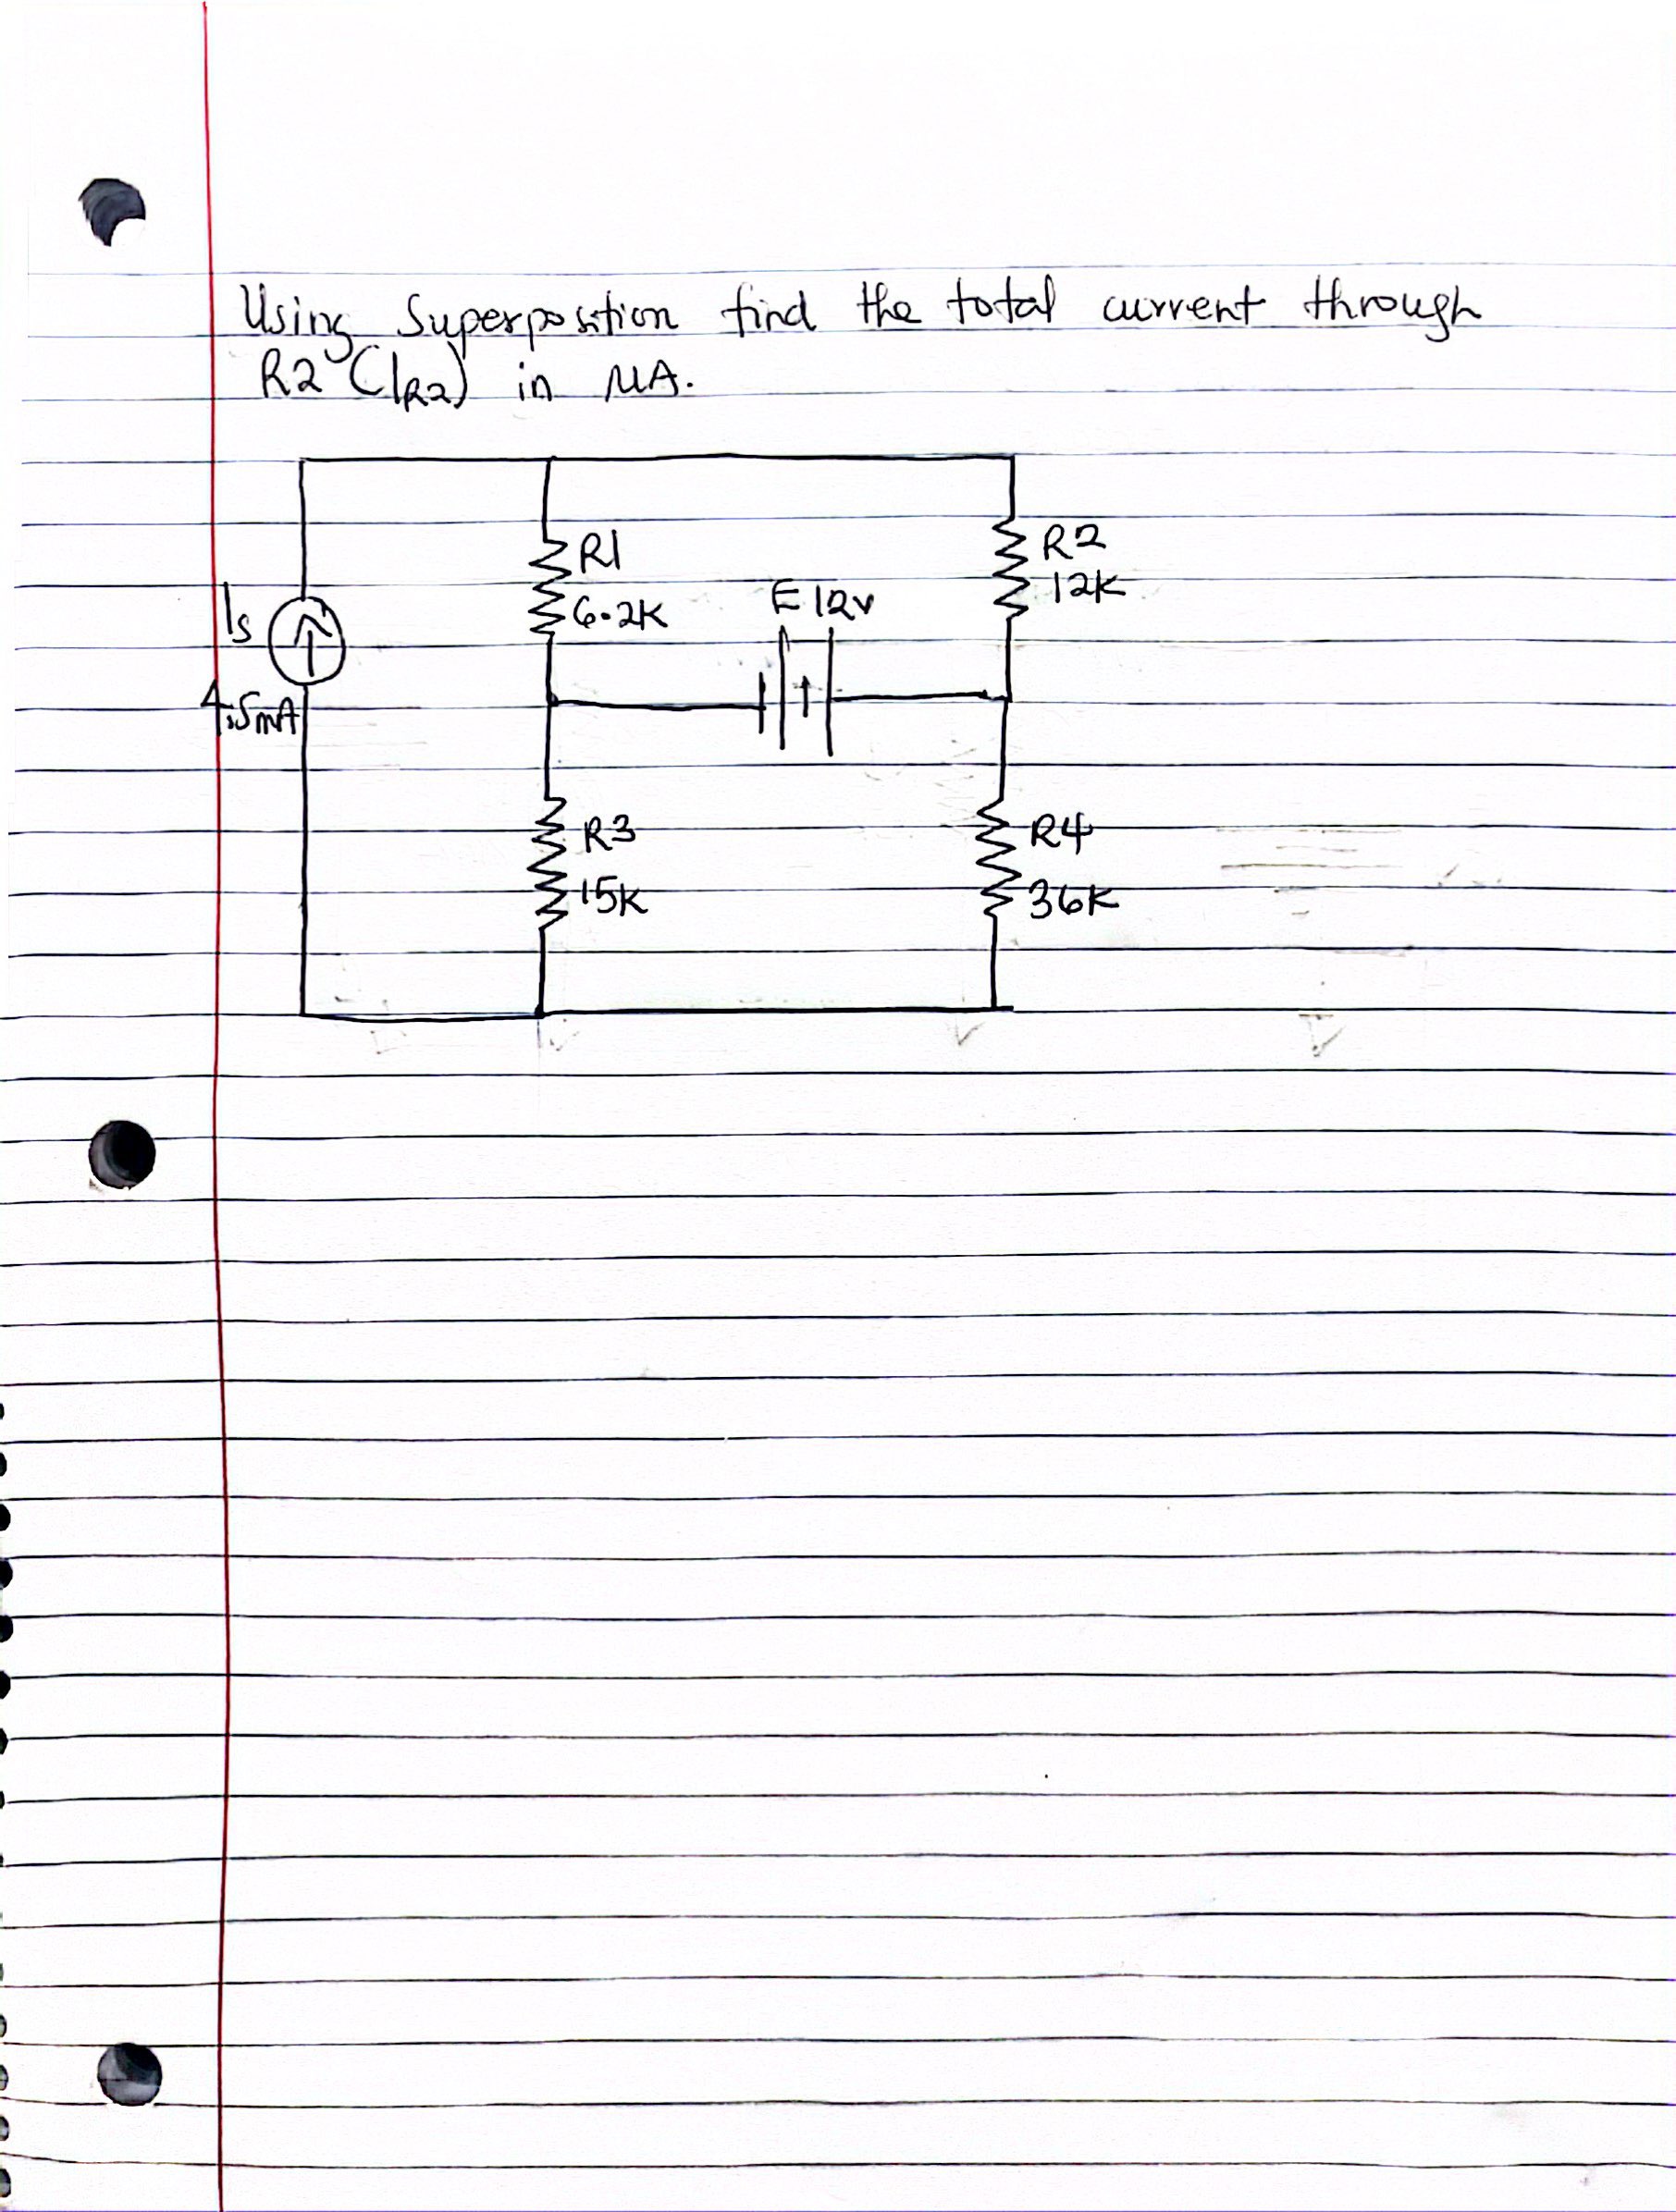 Using Superposition find the total current through
R2 (IR2) in μA.
R1
6.2K
R2
12K
E 12v
Is
4.5mA
R3
15K
R4
36K